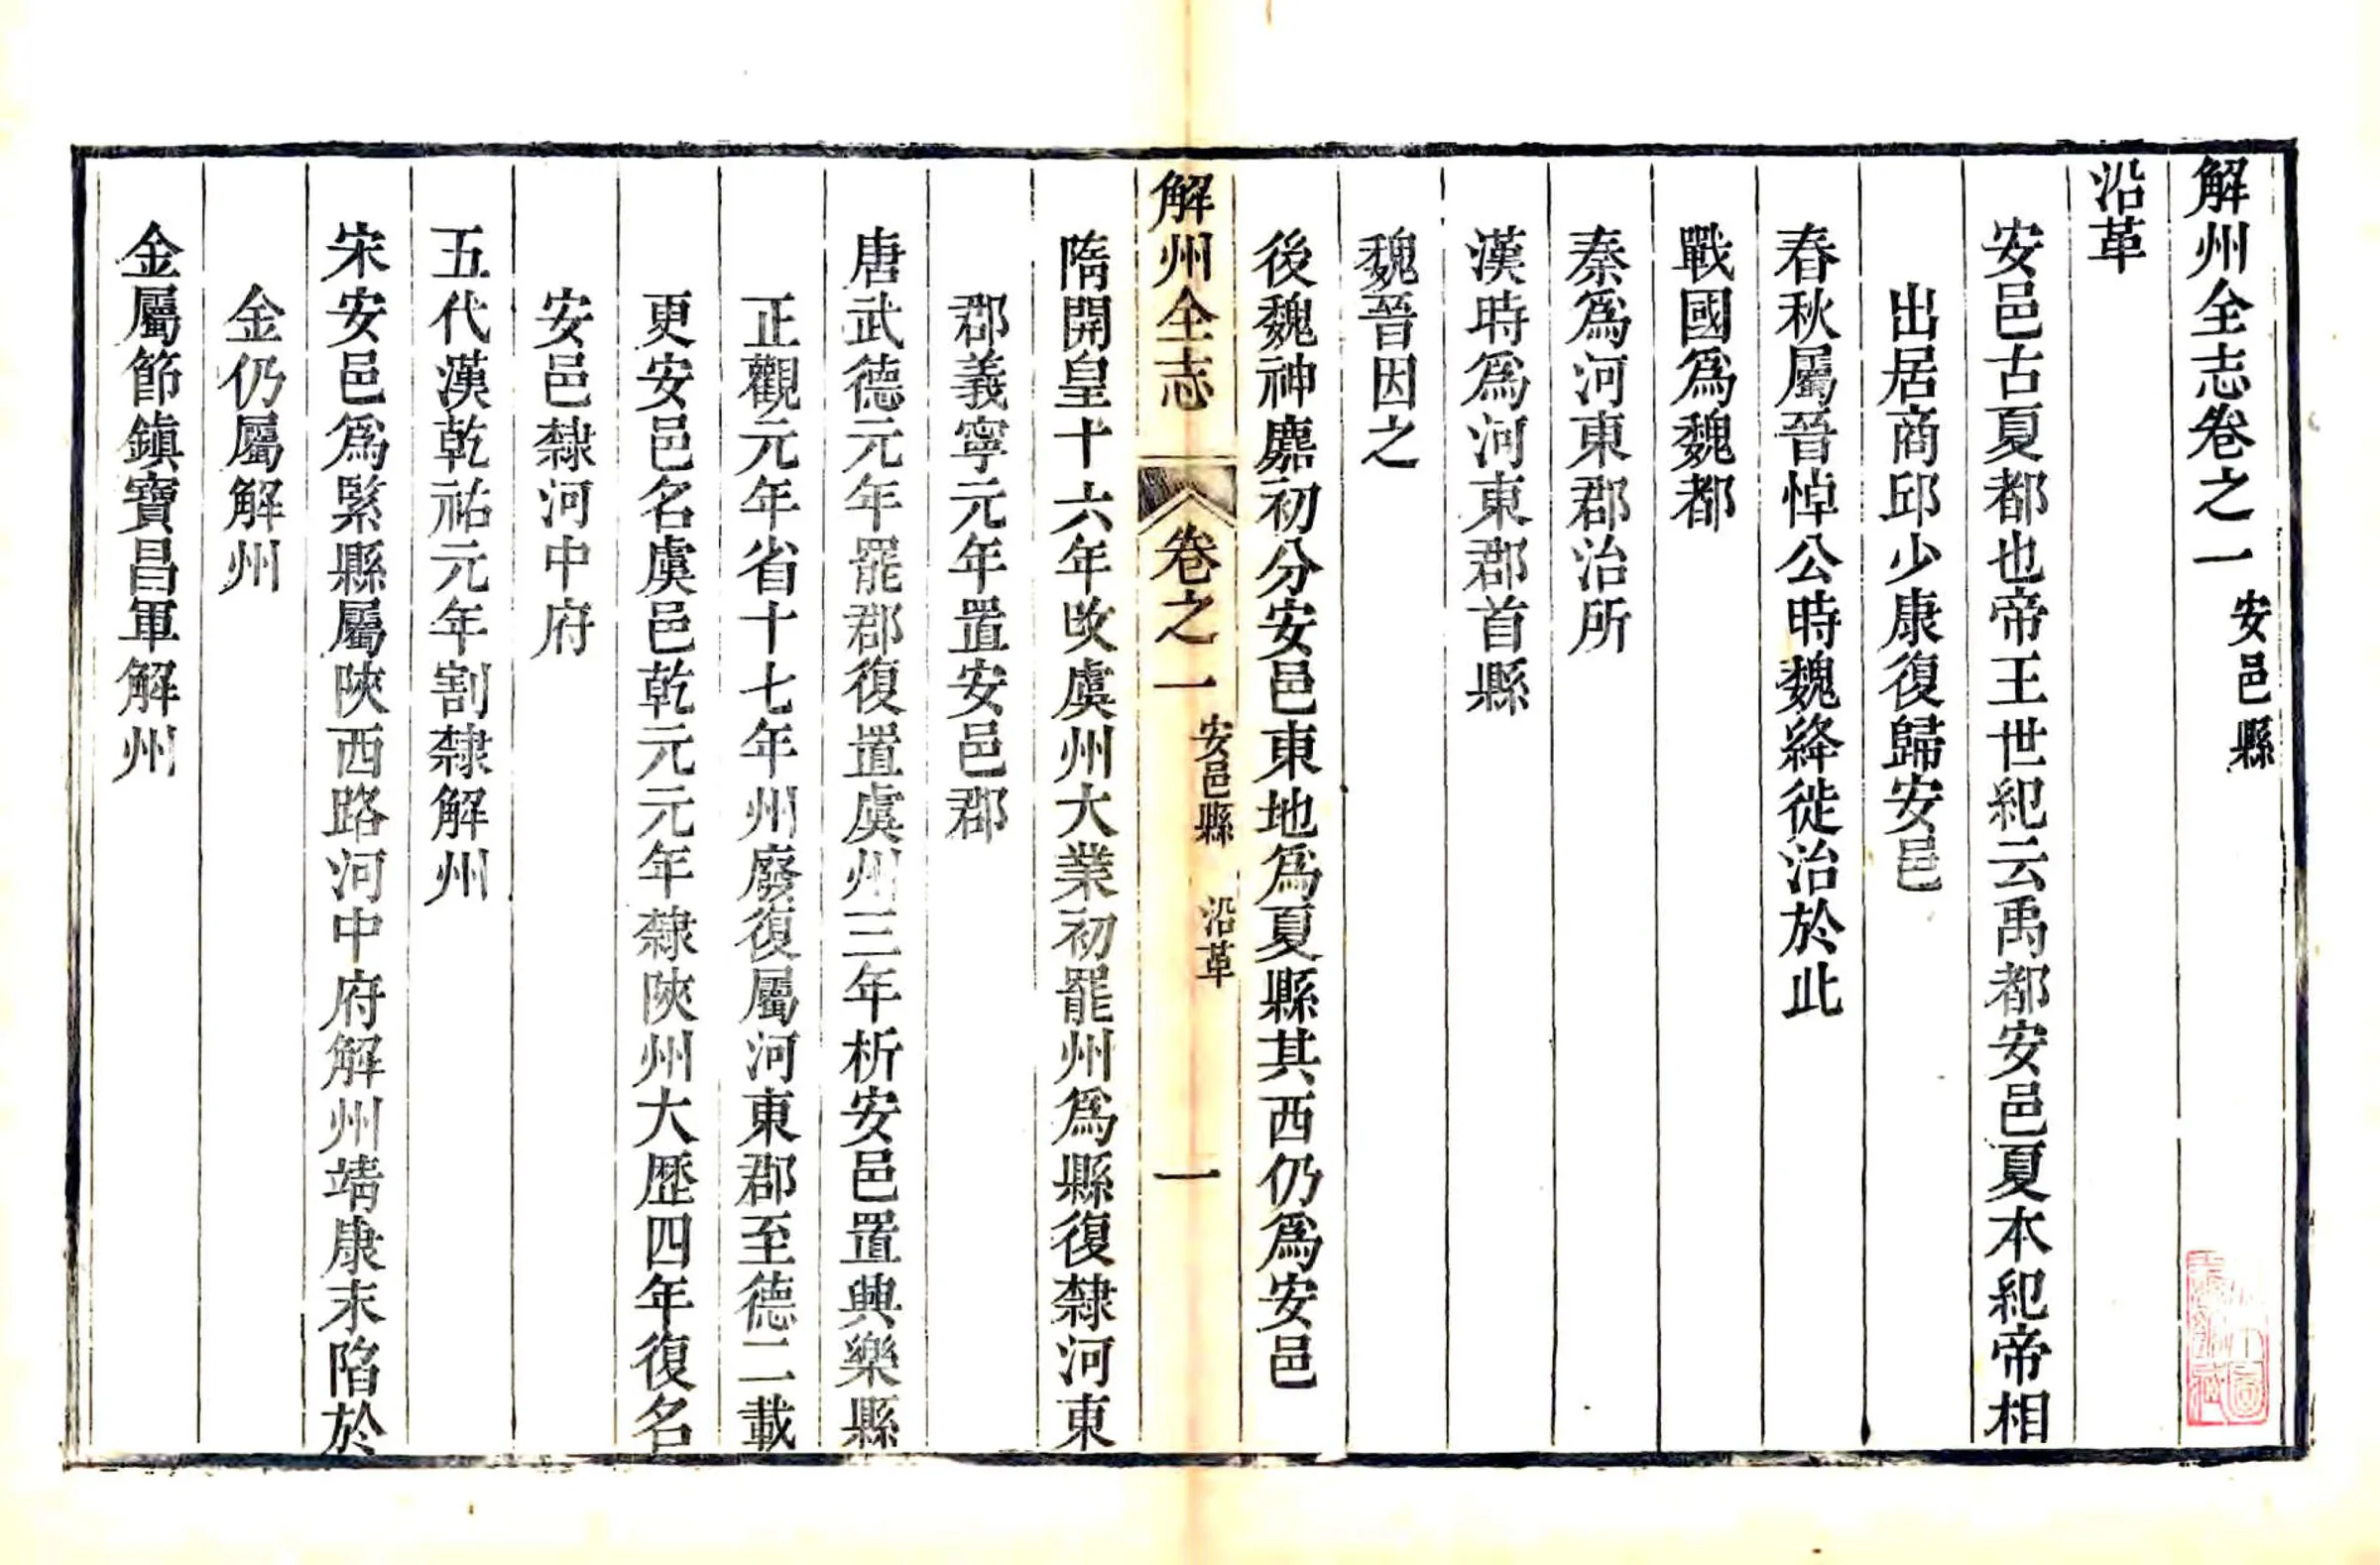 解州全志卷之一 安邑縣
沿革
安邑古夏都也帝王世紀云禹都安邑夏本紀帝相
出居商邱少康復歸安邑
春秋屬晉悼公時魏絳徙治於此
戰國爲魏都
秦爲河東郡治所
漢時爲河東郡首縣
魏晉因之
後魏神䴥初分安邑東地爲夏縣其西仍爲安邑
解州全志 卷之一 安邑縣 沿革 一
隋開皇十六年改虞州大業初罷州爲縣復隸河東
郡義寧元年置安邑郡
唐武德元年罷郡復置虞州三年析安邑置興樂縣
正觀元年省十七年州廢復屬河東郡至德二載
更安邑名虞邑乾元元年隸陜州大歷四年復名
安邑隸河中府
五代漢乾祐元年割隸解州
宋安邑爲緊縣屬陜西路河中府解州靖康末陷於
金仍屬解州
金屬節鎭寶昌軍解州